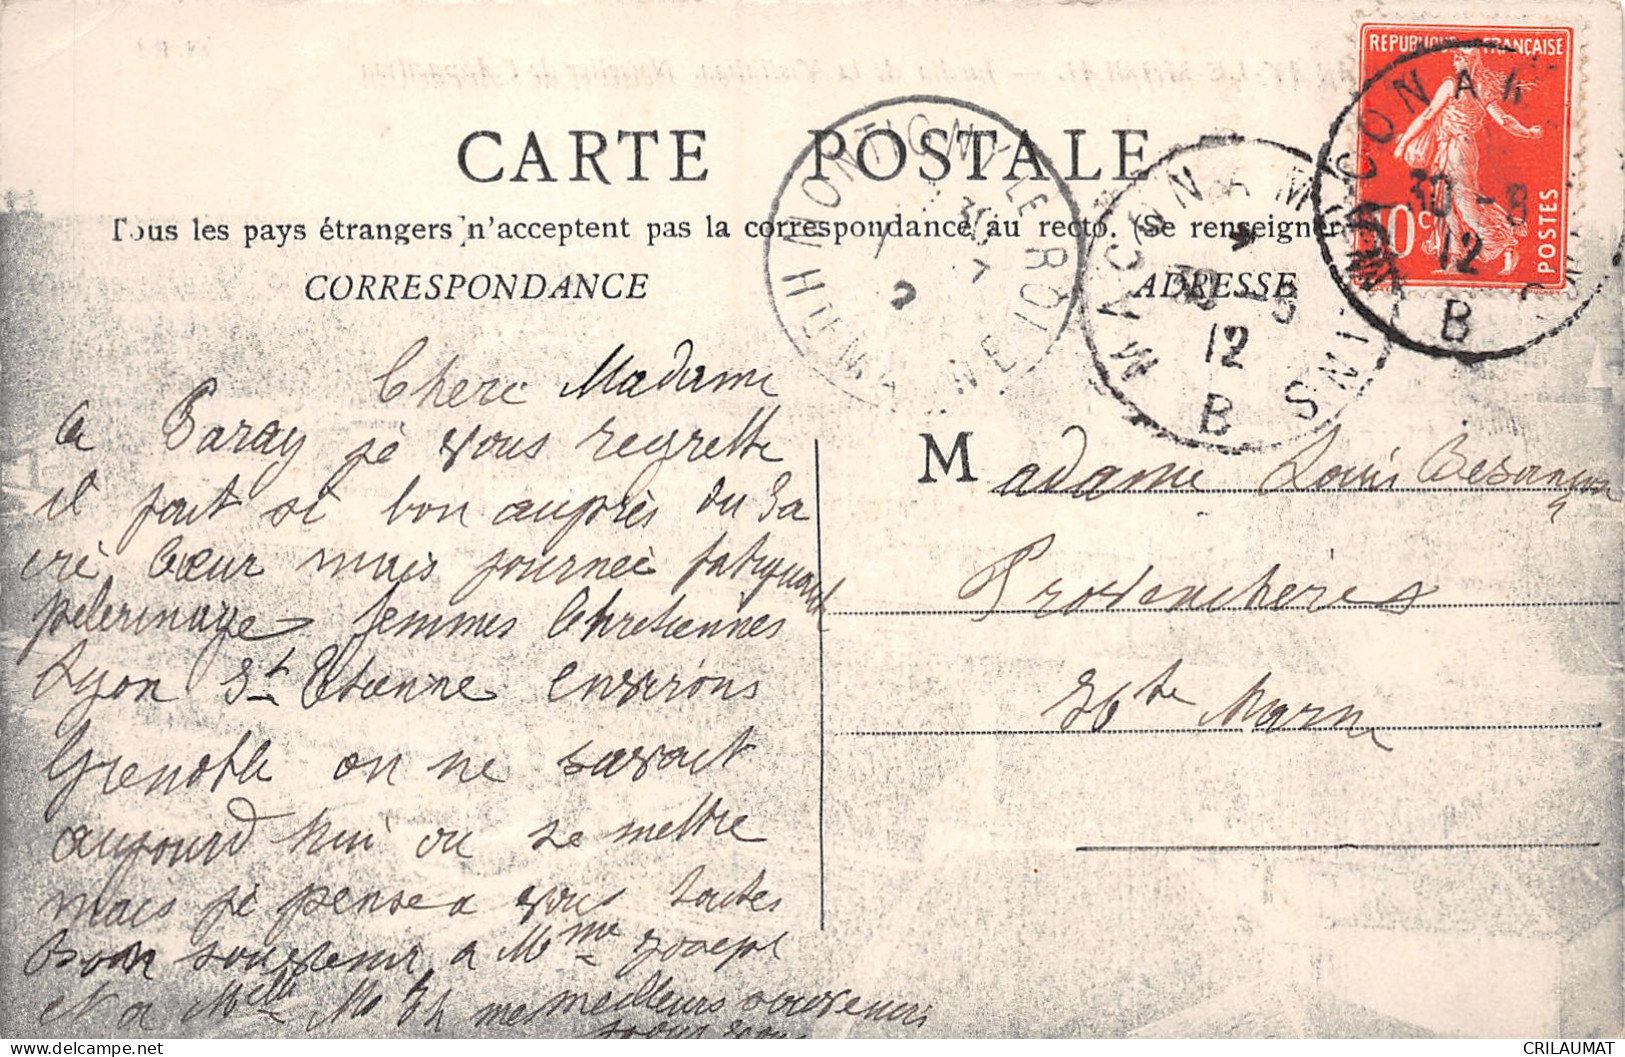 CARTE POSTALE
Tous les pays étrangers n'acceptent pas la correspondance au recto. (Se renseigner
CORRESPONDANCE
ADRESSE
REPUBLIQUE FRANÇAISE
10 c
POSTES
MACON A M
30 - 8
12
B
MACON A M
30 - 8
12
B
MONTIGNY LE ROI
HTE MARNE
Chere Madame
a Paray je vous regrette
il fait si bon auprès du Sa
cré Cœur mais journeé fatiguante
pelerinage femmes Chretiennes
Lyon St Etienne environs
Grenoble on ne savait
aujourd hui ou se mettre
mais je pense a vous toutes
Bon souvenir a Mme Joseph
et a Melle meilleurs souvenirs
pour vous
Madame Louis Besançon
Provencheres
Hte Marne
CRILAUMAT